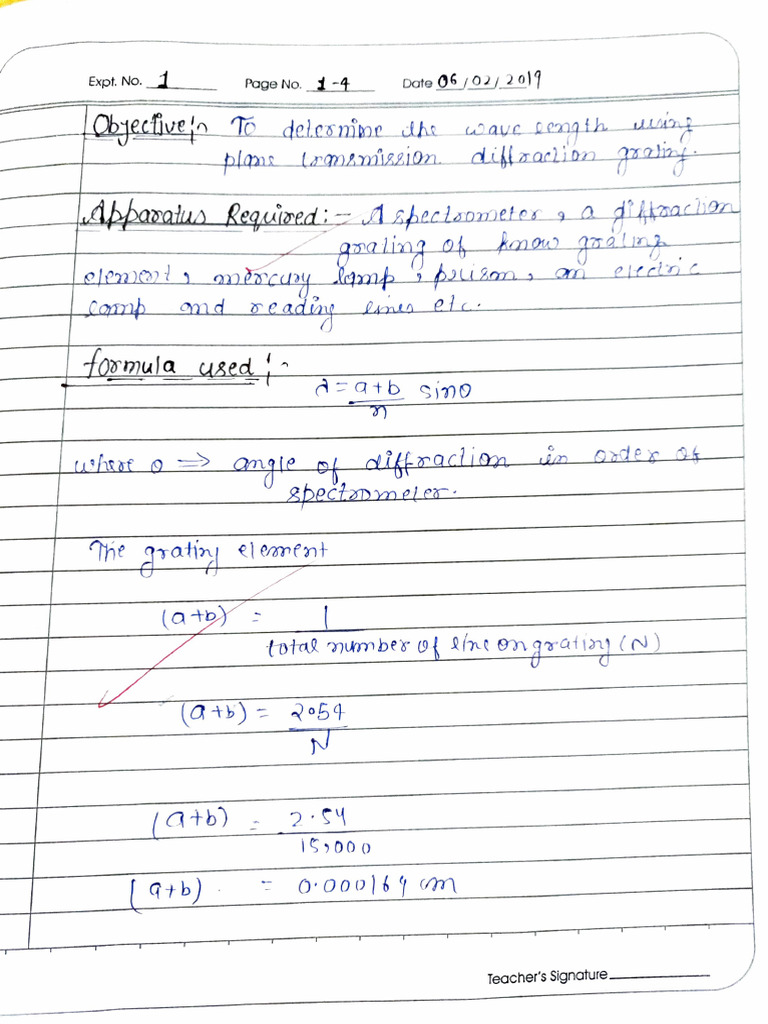 Expt. No. 1 Page No. 1-4 Date 06/02/2019
Objective:- To determine the wave length using
plane transmission diffraction grating.
Apparatus Required:- A spectrometer, a diffraction
grating of know grating
element, mercury lamp, prism, an electric
lamp and reading lines etc.
formula used:-
λ = a+b/n sinθ
where θ ⇒ angle of diffraction in order of
spectrometer.
The grating element
(a+b) = 1
total number of line on grating (N)
(a+b) = 2.54
N
(a+b) = 2.54
15,000
(a+b) = 0.000169 cm
Teacher's Signature